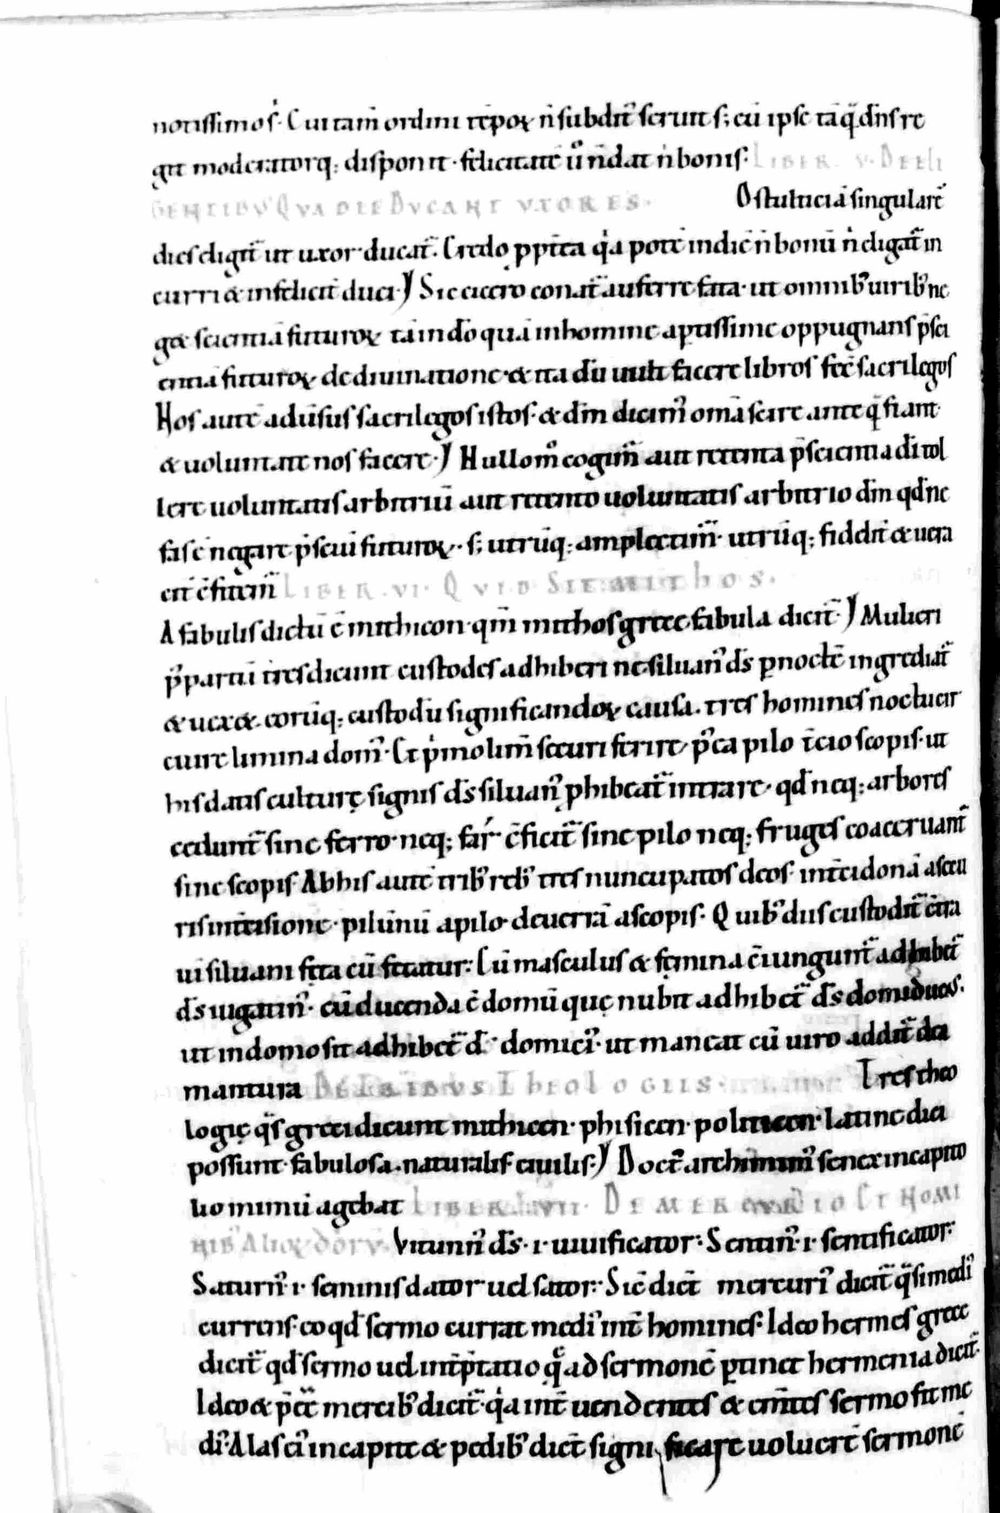 notissimos. Cui tam̄ ordini tēpoꝝ n̄ subdit᷑ seruit s; cū ipse tāq̄ dn̄s re
git moderatorq; disponit. felicitatē ū n̄ dat n̄ bonis. LIBER. V. DE ELI
GENTIBUS QUA DIE DUCANT UXORES.
O stulticiā singularē
dies digit᷑ ut uxor ducat᷑. Credo ppt̄ea q̇a potē indie n̄ bonū n̄ digat᷑ in
curri & infelicit̄ duci. Sic cicero conat᷑ auferre fata. ut omnibꝰ uiribꝰ ne
get scientiā futuroꝝ tā in dō quā in homine aptissime oppugnans p̄sci
entiā futuroꝝ de diuinatione. & ita dū uult facere liberos fec̄ sacrilegos
Hos autē aduersus sacrilegos istos. & dm̄ dicimꝰ om̄a scire ante q̄ fiant
& uoluntate nos facere. Nullomꝰ cogim᷑ aut retenta p̄scientia dī tol
lere uoluntatis arbitriū aut retento uoluntatis arbitrio dm̄ qd̄ ne
fas ē negare p̄sciū futuroꝝ. s; utrūq; amplectim᷑. utrūq; fidelit̄ & uera
cit̄ cfitem᷑ LIBER. VI. QUID SIT MITHOS.
A fabulis dictū ē mithicon. qm̄ mithos grece fabula dicit᷑. Mulieri
p̄ partū tres dicunt custodes adhiberi ne siluanꝰ d̄s p noctē ingrediat᷑
& uexet. eorūq; custodū significandoꝝ causa. tres homines noctu cir
cuire limina domꝰ. Et ṗmo lim̄ securi ferire p̄ea pilo t̄cio scopis. ut
his datis culturę signis d̄s siluanꝰ phibeat᷑ intrare. qd̄ neq; arbores
cedunt᷑ sine ferro. neq; far cficit᷑ sine pilo neq; fruges coaceruant᷑
sine scopis Ab his autē tribꝰ rebꝰ tres nuncupatos deos. int̄cidonā a secu
ris int̄cisione. pilūnū a pilo deuerrā a scopis. Quibꝰ diis custodit᷑ ct̄ra
uī siluani feta cū fetatur. Cū masculus & femina ciungunt᷑ adhibet᷑
d̄s iugatinꝰ. cū ducenda ē domū quę nubit adhibet᷑ d̄s domiducꝰ.
ut in domo sit adhibet᷑ d̄s domicꝰ. ut maneat cū uiro addit᷑ dea
manturna DE TRIBUS THEOLOGIIS. Tres theo
logię q̄s greci dicunt mithicen. phisicen. politicen. Latine dici
possunt. fabulosa. naturalis. ciuilis. Doct᷑ archimimꝰ senex in capito
lio mimū agebat LIBER. VII. DE MERCURIO ET NOMI
NIBꝰ ALIOꝝ DEOꝝ. Vitunnꝰ d̄s. i. uiuificator. Sentinꝰ. i. sensificator.
Saturnꝰ. i. seminis dator uel sator. Sic dict᷑ mercuriꝰ dicit᷑ q̄si mediꝰ
currens. eo qd̄ sermo currat mediꝰ int̄ homines. Ideo hermes grece
dicit᷑ qd̄ sermo uel int̄ptatio q̄ ad sermonē ptinet hermenia dicit᷑.
Ideo & p̄ee mercibꝰ dicit᷑. q̇a int̄ uendentes & em̄tes sermo fit me
diꝰ. Alas ei in capite & pedibꝰ dict̄ significare uoluerē sermonē